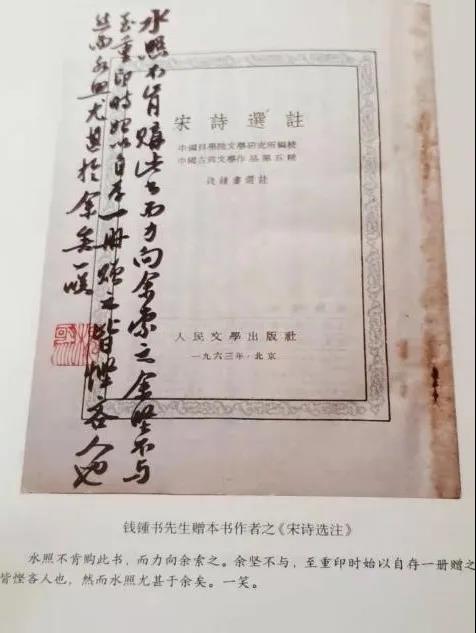 水照不肯購此书而力向余索之余坚不与
至重印時始以自存一册贈之皆慳吝人也
然而水照尤甚於余矣一咲
宋詩選註
中國科學院文學研究所編
中國古典文學作品第五種
錢鍾書選註
人民文學出版社
一九六三年·北京
钱锺书先生赠本书作者之《宋诗选注》
水照不肯购此书，而力向余索之。余坚不与，至重印时始以自存一册赠之
皆悭吝人也，然而水照尤甚于余矣。一笑。